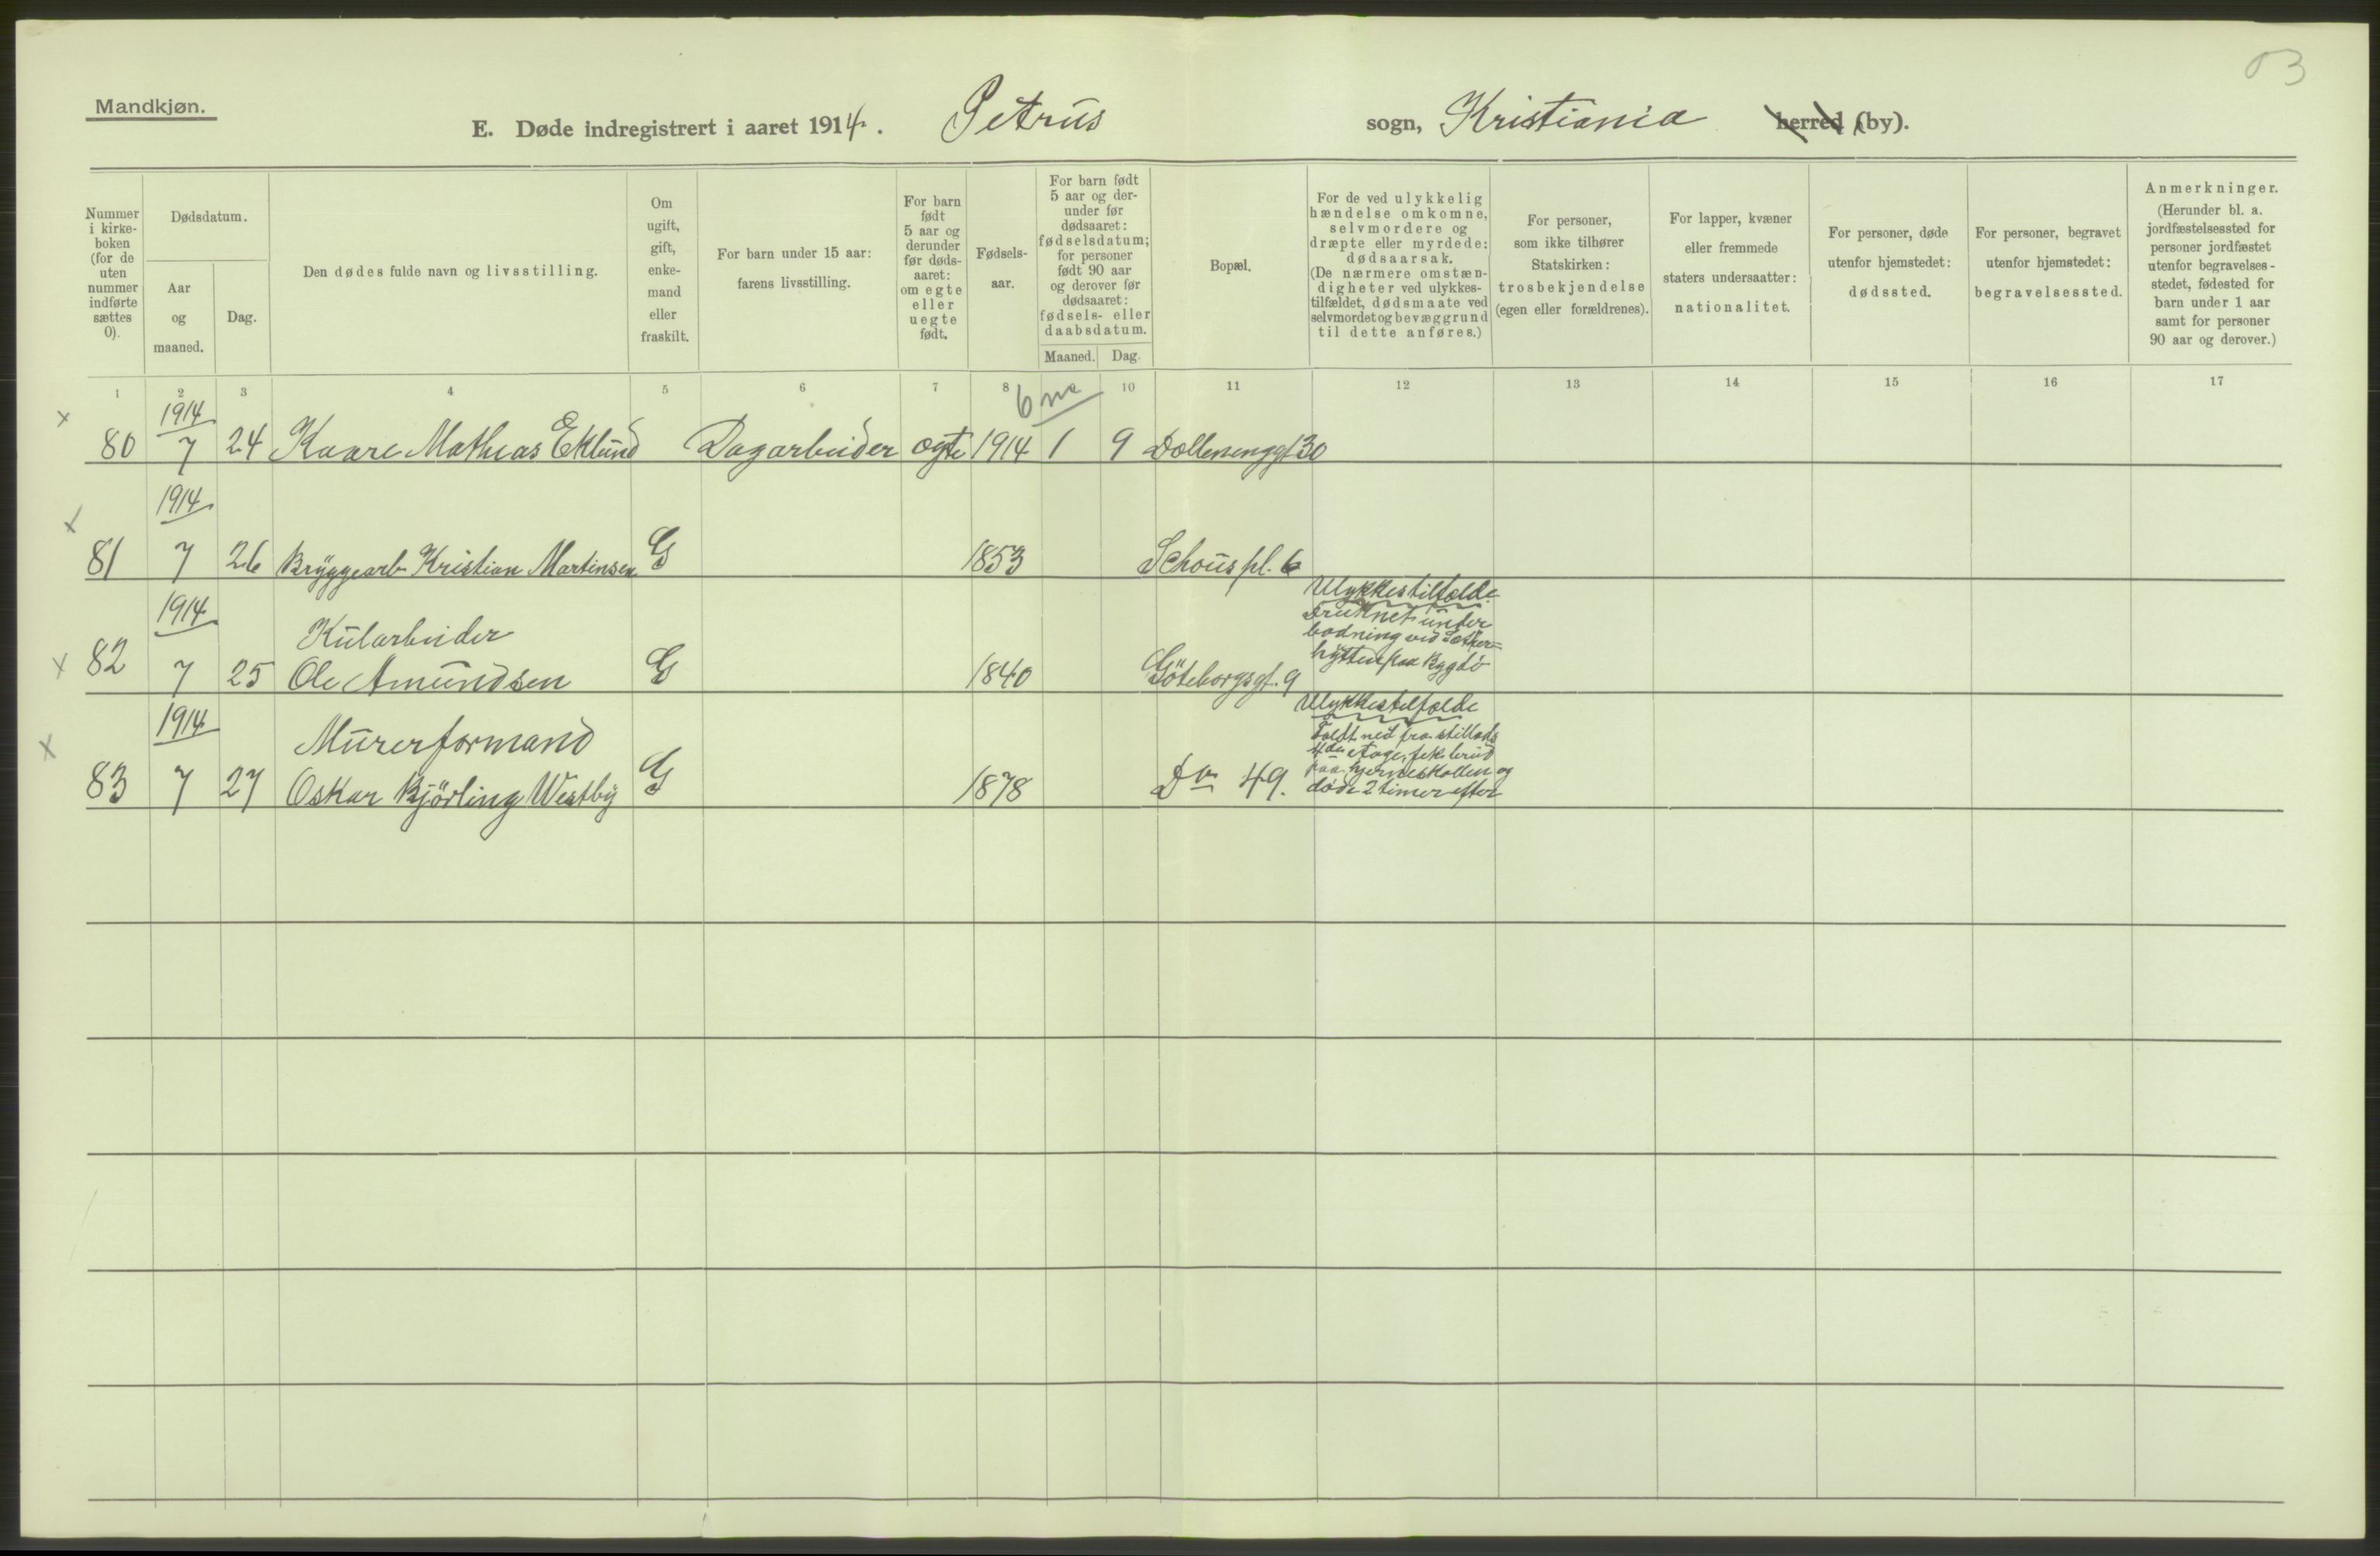 03
Mandkjøn.
E. Døde indregistrert i aaret 1914. Petrus sogn, Kristiania herred (by).
Nummer i kirkeboken (for de uten nummer indførte sættes 0).
Dødsdatum.
Aar og maaned.
Dag.
Den dødes fulde navn og livsstilling.
Om ugift, gift, enkemand eller fraskilt.
For barn under 15 aar: farens livsstilling.
For barn født 5 aar og derunder før dødsaaret: om egte eller uegte født.
Fødselsaar.
For barn født 5 aar og derunder før dødsaaret: fødselsdatum; for personer født 90 aar og derover før dødsaaret: fødsels- eller daabsdatum.
Maaned. Dag.
Bopæl.
For de ved ulykkelig hændelse omkomne, selvmordere og dræpte eller myrdede: dødsaarsak. (De nærmere omstændigheter ved ulykkestilfældet, dødsmaate ved selvmordet og bevæggrund til dette anføres.)
For personer, som ikke tilhører Statskirken: trosbekjendelse (egen eller forældrenes).
For lapper, kvæner eller fremmede staters undersaatter: nationalitet.
For personer, døde utenfor hjemstedet: dødssted.
For personer, begravet utenfor hjemstedet: begravelsessted.
Anmerkninger. (Herunder bl. a. jordfæstelsessted for personer jordfæstet utenfor begravelsesstedet, fødested for barn under 1 aar samt for personer 90 aar og derover.)
1 2 3 4 5 6 7 8 10 11 12 13 14 15 16 17
6 m
x 1914
80 7 24 Kaare Mathias Eklund Dagarbeider ægte 1914 1 9 Dællenenggt 30
x 1914
81 7 26 Bryggearb Kristian Martinsen G 1853 Schous pl. 6
1914 Kularbeider
x 82 7 25 Ole Amundsen G 1840 Göteborgsgt. 9
Ulykkestilfælde
Druknet under
badning ved
hytten paa Bygdö
1914 Murerformand
x 83 7 27 Oskar Björling Westby G 1878 Do 49.
Ulykkestilfælde
Faldt ned fra stillads
4de etage, fik brud
paa hjerneskallen og
døde 2 timer efter